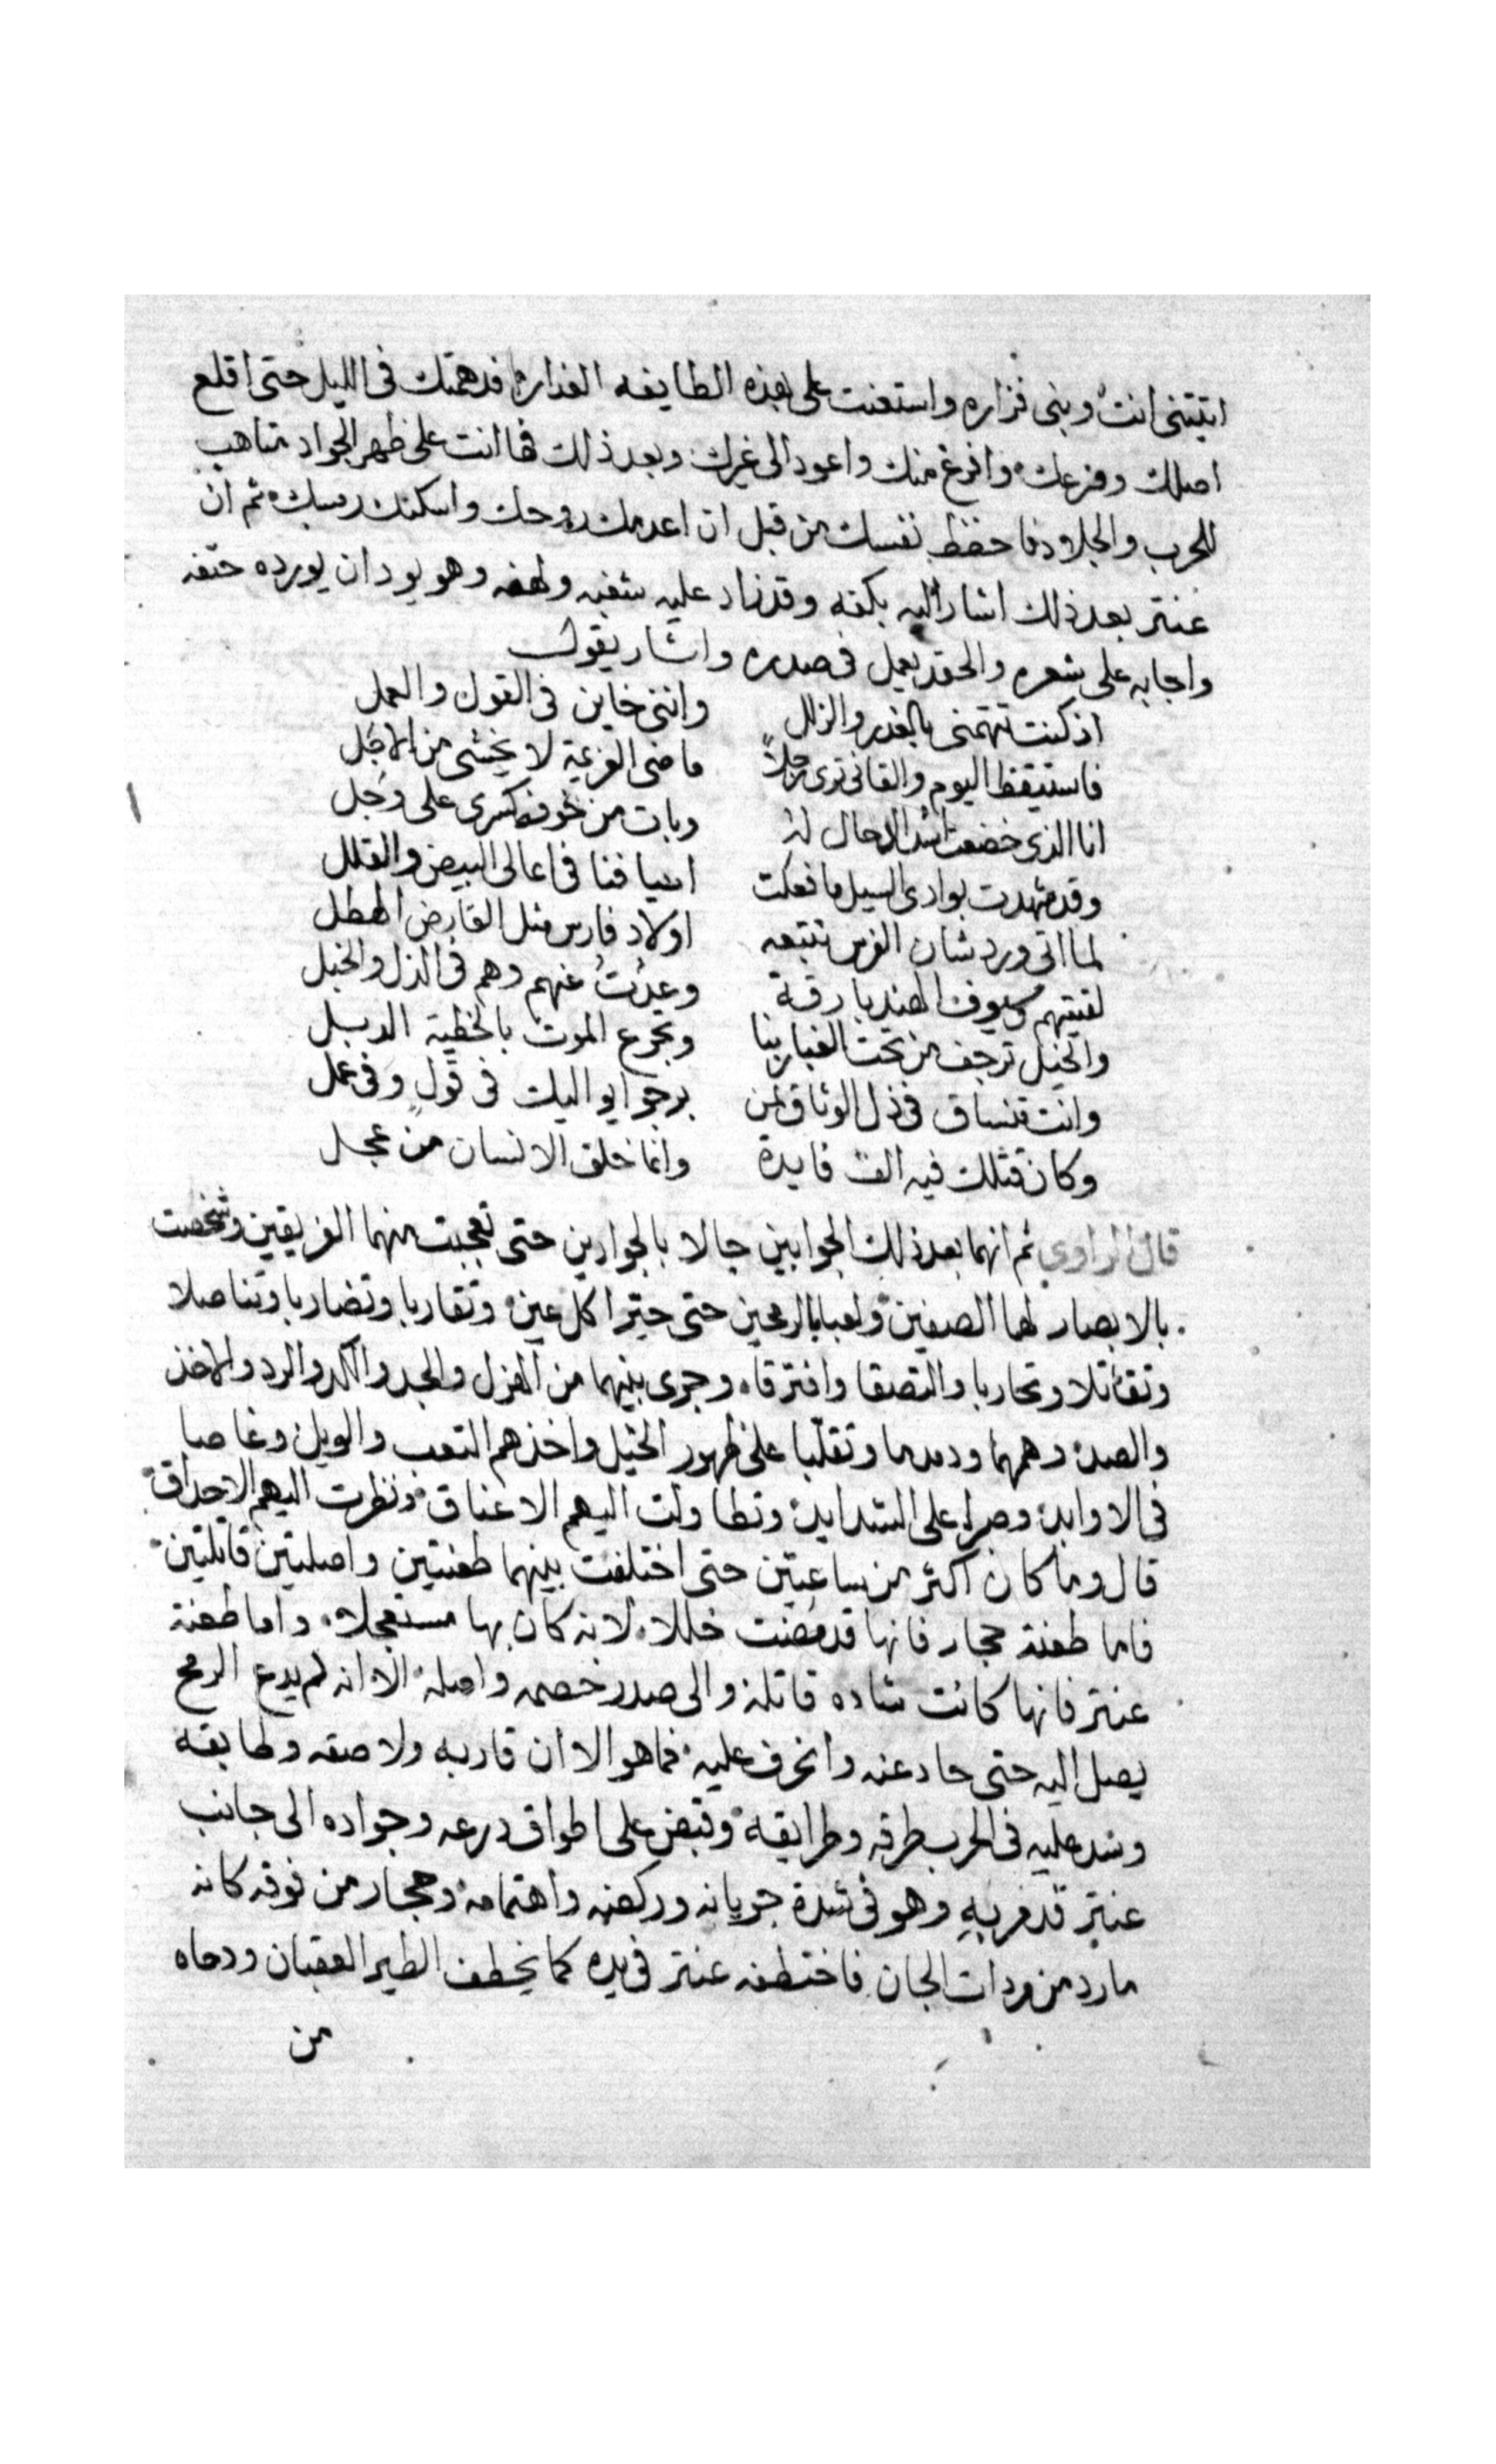 اتيتنى انت وبنى فزاره واستعنت على بهذه الطايفه الغداره فدهمتك فى الليل حتى اقلع
اصلك وفرعك وافرغ منك واعود الى غيرك وبعد ذلك فها انت على ظهر الجواد متاهب
للحرب والجلاد فاحفظ نفسك من قبل ان اعدمك روحك واسكنك رمسك ثم ان
عنتر بعد ذلك اشار اليه بكفه وقد زاد عليه شغبه ولهفه وهو يود ان يورده حتفه
واجابه على شعره والحقد يعمل فى صدره واشار يقول
اذ كنت تتهمنى بالغدر والزلل وانى خاين فى القول والعمل
فاستيقظ اليوم والقانى ترى رجلاً ماضى العزيمة لا يخشى من الاجل
انا الذى خضعت اسد الرجال له وبات من خوفه كسرى على وجل
وقد شهدت بوادى السيل ما فعلت اسيافنا فى اعالى البيض والقلل
لما اتى وردشان الفرس تتبعه اولاد فارس مثل العارض الهطل
لقيتهم وسيوف الهند بارقة وعدت عنهم وهم فى الذل والخبل
والخيل ترجف من تحت الغبار بنا وتجرع الموت بالخطية الدبل
وانت تنساق فى ذل الوثاق لمن يرجو ايواليك فى قول وفى عمل
وكان قتلك فيه الف فايدة وانما خلق الانسان من عجل
قال الراوى ثم انهما بعد ذلك الجوابين جالا بالجوادين حتى تعجبت منهما الفريقين وشخصت
بالابصار لهما الصفين ولعبا بالرمحين حتى حيرا كل عين وتقاربا وتضاربا وتناصلا
وتقاتلا وتحاربا والتصقا وافترقا وجرى بينهما من الهزل والجد والكد والرد والاخذ
والصد وهمهما ودمدما وتقلبا على ظهور الخيل واخذهم التعب والويل وغاصا
فى الاوابد وصبرا على الشدايد وتطاولت اليهم الاعناق ونظرت اليهم الاحداق
قال وما كان اكثر من ساعتين حتى اختلفت بينهما طعنتين واصلتين قاتلتين
فاما طعنة حجار فانها قد مضت خللا لانه كان بها مستعجلا واما طعنة
عنتر فانها كانت شاده قاتلة والى صدر خصمه واصلة الا انه لم يدع الرمح
يصل اليه حتى حاد عنه وانحرف عليه فما هو الا ان قاربه ولاصقه وطابقه
وسد عليه فى الحرب طرقه وطرايقه وقبض على اطواق درعه وجواده الى جانب
عنتر قد مر به وهو فى شدة جريانه وركضه واهتمامه وحجار من فوقه كانه
مارد من مردات الجان فاختطفه عنتر فى يده كما يخطف الطير العقبان ودحاه
من